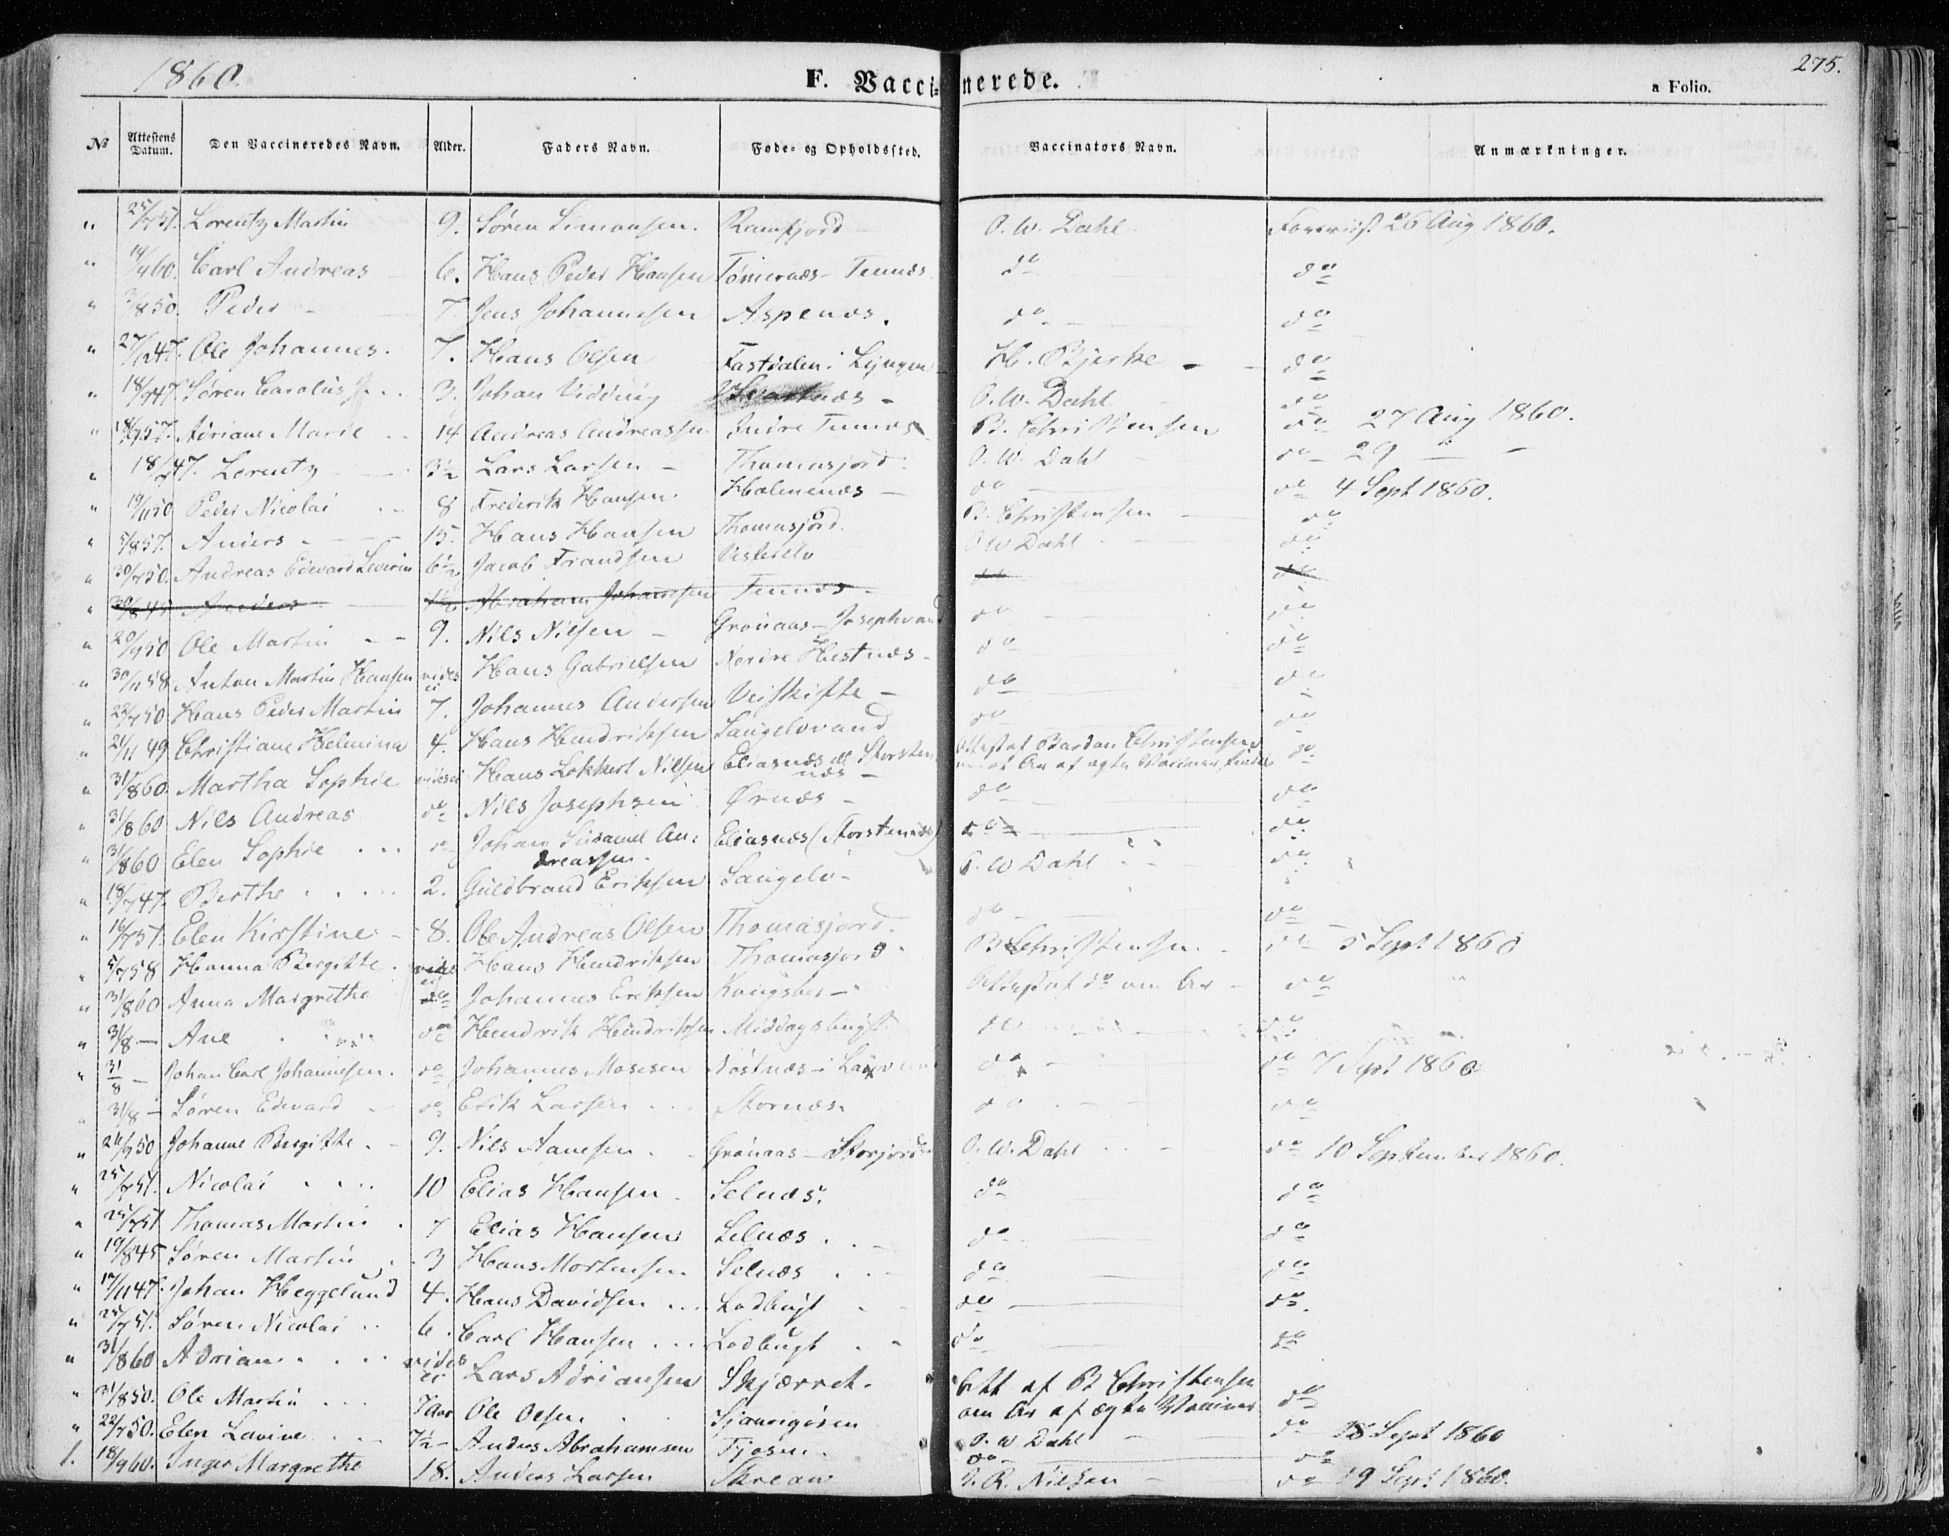 1860.
F. Vaccinerede.
275.
a Folio.
№ Attestens Datum. Den Vaccineredes Navn. Alder. Faders Navn. Føde- og Opholdssted. Vaccinators Navn. Anmærkninger.
" 25/7 51. Lorentz Martin 9. Søren Simonsen. Ramfjord O. W. Dahl. Foreviist 26 Aug 1860.
" 14/9 60. Carl Andreas 6. Hans Peder Hansen Tennæs do do
" 3/8 50. Peder 7. Jens Johannesen Aspenæs. do do
" 27/12 47. Ole Johannes. 7. Hans Olsen Fastdalen i Lyngen H. Bjerke do
" 18/9 47. Søren Carolus 3. Johan Vidding O. W. Dahl do
" 18/9 57. Adriane Marie 14 Andreas Andreassen Indre Tennæs B. Christensen do 27 Aug 1860.
" 18/ 47. Lorentz 3½ Lars Larsen Thomasjord. O. W. Dahl do 29
" 19/11 50 Peder Nicolai 8 Frederik Hansen. Holmenæs do do 4 Sept 1860.
" 5/8 57. Anders 15. Hans Hansen Thomasjord. B. Christensen do
" 30/7 50. Andreas Edevard Severin 6½ Jacob Frandsen O W Dahl do
" Anders 1½ Abraham Johannesen Tennæs do do
" 20/9 50 Ole Martin 9. Nils Nilsen Grønaas Josephvand do do
" 30/11 58. Anton Martin Hansen Hans Gabrielsen Nordre Hestnæs do do
" 22/7 50 Hans Peder Martin 7. Johannes Andersen Veiskifte do do
" 21/11 49 Christiane Helmina 4. Hans Hendriksen do do
" 31/8 60. Martha Sophie Hans Lokkert Nilsen Eliasnæs ell Storstennæs Attest af Bardon Christensen om at Ar af ægte Vacciner findes do
" 31/8 60 Nils Andreas do Nils Josephsen Ørnæs do do
" 31/8 60 Elen Sophie do Johan Andreassen. Eliasnæs (Storstennæs) do do
" 18/7 47. Berthe 2. Guldbrand Eriksen O. W Dahl do
" 16/7 51. Elen Kirstine 8. Ole Andreas Olsen Thomasjord. do do
" 5/7 58 Hanna Bergitte. Hans Hendriksen Thomasjord B Christensen do 5 Sept 1860
" 31/8 60 Anna Margrethe do Johannes Eriksen Attest af do om Ar do
" 31/8 — Ane do Hendrik Hendriksen Middagsbugt do do
" 31/8 — Johan Carl Johannesen. do Johannes Mosesen do do 7 Sept 1860
" 31/8 — Søren Edevard do Erik Larsen Stornæs. do do
" 24/9 50 Johanne Bergitte. 9. Nils Aanesen. Grønaas — Storfjord O. W. Dahl do 10 September 1860.
" 25/7 51. Nicolai 10 Elias Hansen Selnæs. do do
" 25/7 51 Thomas Martin 7 Elias Hansen Selnæs do do
" 19/8 45 Søren Martin 3 Hans Mortensen Selnæs do do
" 17/11 47. Johan Heggelund 4. Hans Davidsen Lodbugt do do
" 25/7 51. Søren Nicolai 6. Carl Hansen Lodbugt do do
" 31/8 60 Adrian Lars Adriansen Skjærret. Att af B Christensen om Ar af ægte Vacciner do
" 31/8 50. Ole Martin 7 Aar Ole Olsen O. W Dahl do 18 Sept 1860
" 22/7 50. Elen Lavine 7½ Anders Abrahamsen do do
1. 18/9 60. Inger Margrethe 18. Anders Larsen Nilsen do 19 Sept 1860.